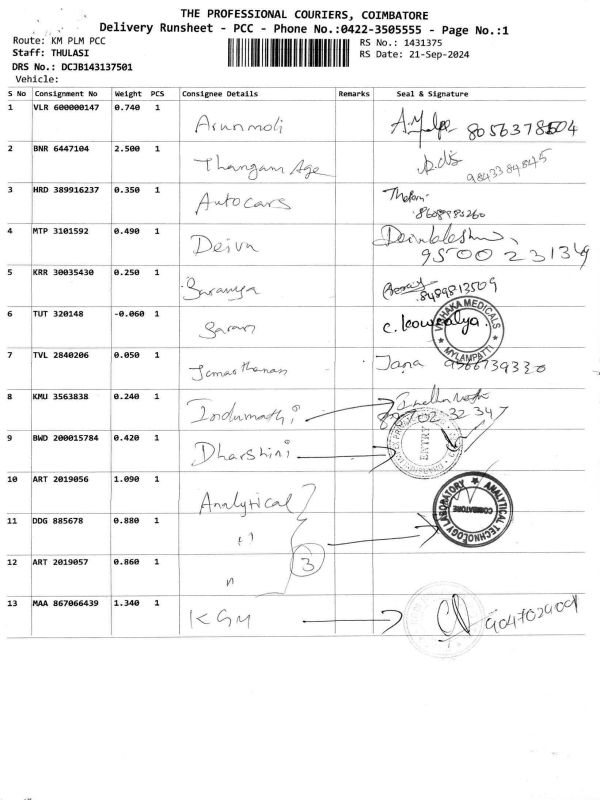 THE PROFESSIONAL COURIERS, COIMBATORE
Delivery Runsheet - PCC - Phone No.:0422-3505555 - Page No.:1
Route: KM PLM PCC
RS No.: 1431375
Staff: THULASI
RS Date: 21-Sep-2024
DRS No.: DCJB143137501
Vehicle:
S No Consignment No Weight PCS Consignee Details Remarks Seal & Signature
1 VLR 600000147 0.740 1 Arunmoli
2 BNR 6447104 2.500 1 Thangam Age 9843384845
3 HRD 389916237 0.350 1 Autocars
4 MTP 3101592 0.490 1 Deiva 9500023134
5 KRR 30035430 0.250 1 Saranya 8489813509
6 TUT 320148 -0.060 1 Saran C. Kowsalya VISHAKA MEDICALS MYLAMPATTI
7 TVL 2840206 0.050 1 Jana
8 KMU 3563838 0.240 1 Indumathi
9 BWD 200015784 0.420 1 Dharshini ENTRY
10 ART 2019056 1.090 1 Analytical ANALYTICAL TECHNOLOGY LABORATORY COIMBATORE
11 DDG 885678 0.880 1 "
3
12 ART 2019057 0.860 1 "
13 MAA 867066439 1.340 1 KGM